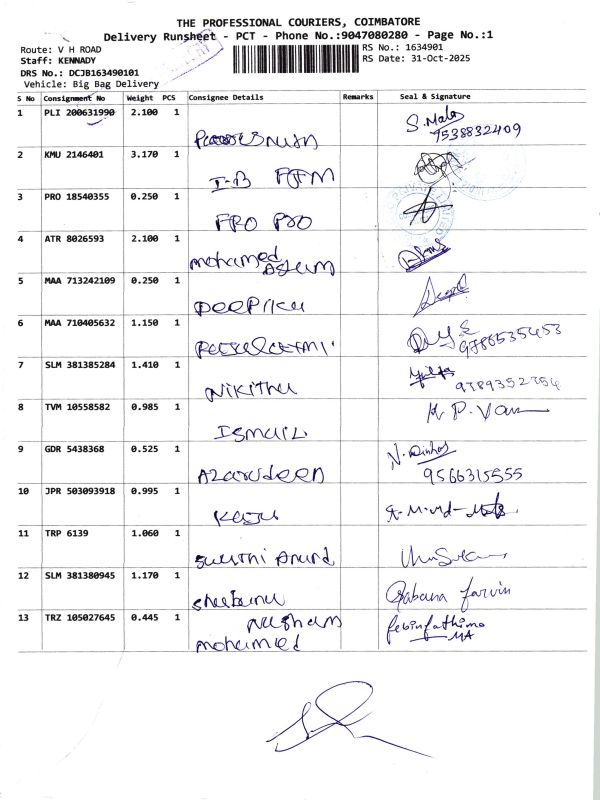 THE PROFESSIONAL COURIERS, COIMBATORE
Delivery Runsheet - PCT - Phone No.:9047080280 - Page No.:1
Route: V H ROAD
RS No.: 1634901
Staff: KENNADY
RS Date: 31-Oct-2025
DRS No.: DCJB163490101
Vehicle: Big Bag Delivery
S No Consignment No Weight PCS Consignee Details Remarks Seal & Signature
1 PLI 200631990 2.100 1 S. Mala
7538832409
2 KMU 2146401 3.170 1
I-B FFM
3 PRO 18540355 0.250 1
FRO PRO
4 ATR 8026593 2.100 1
mohamed
Aslam
5 MAA 713242109 0.250 1
Deepika
6 MAA 710405632 1.150 1
9786535453
7 SLM 381385284 1.410 1
Nikitha 9789352754
8 TVM 10558582 0.985 1
Ismail
9 GDR 5438368 0.525 1
Azarudeen 9566315555
10 JPR 503093918 0.995 1
Raju
11 TRP 6139 1.060 1
Anand
12 SLM 381380945 1.170 1
Shabana farvin
13 TRZ 105027645 0.445 1
febinfathima
mohamed